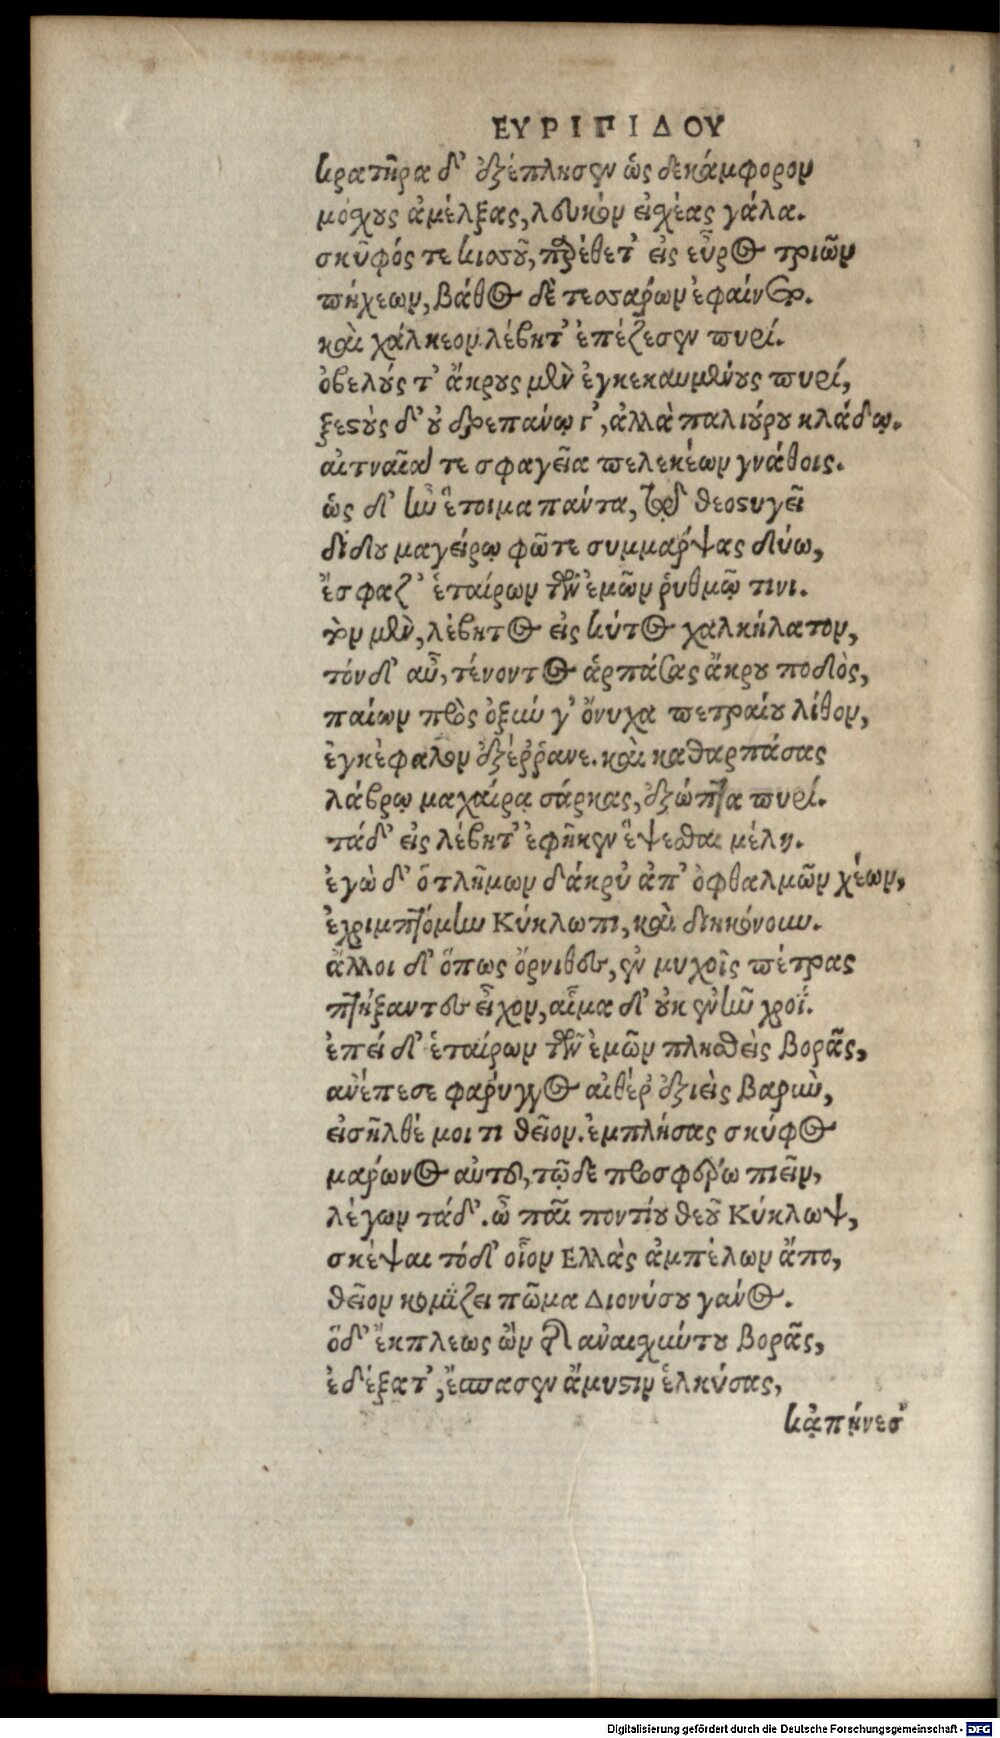 ΕΥΡΙΠΙΔΟΥ
κρατῆρα δ' ἐξέπλησεν ὡς δεκάμφορον
μόχους ἀμέλξας, λευκὸν εἰχέας γάλα.
σκῦφός τε κισσοῦ, παρέθετ' εἰς εὖρος τριῶν
πήχεων, βάθος δὲ τεσσάρων ἐφαίνετο.
καὶ χάλκεον λέβητ' ἐπέζεσεν πυρί.
ὀβελούς τ' ἄκρους μὲν ἐγκεκαυμένους πυρί,
ξεστοὺς δ' οὐ δρεπάνῳ γ', ἀλλὰ παλιούρου κλάδῳ.
αἰτναῖά τε σφαγεῖα πελεκέων γνάθοις.
ὡς δ' ἦν ἕτοιμα πάντα, τῷ θεοστυγεῖ
δίδου μαγείρῳ φῶτε συμμάρψας δύω,
ἔσφαζ' ἑταίρων τῶν ἐμῶν ῥυθμῷ τινι.
τὸν μὲν, λέβητος εἰς κύτος χαλκήλατον,
τόνδ' αὖ, τένοντος ἁρπάσας ἄκρου ποδὸς,
παίων πρὸς ὀξὺν γ' ὄνυχα πετραίου λίθου,
ἐγκέφαλον ἐξέῤῥανε. καὶ καθαρπάσας
λάβρῳ μαχαίρᾳ σάρκας, ἐξώπτα πυρί.
τάδ' εἰς λέβητ' ἐφῆκεν ἕψεσθαι μέλη.
ἐγὼ δ' ὁ τλήμων δάκρυ ἀπ' ὀφθαλμῶν χέων,
ἐχριμπτόμην Κύκλωπι, καὶ διηκόνουν.
ἄλλοι δ' ὅπως ὄρνιθες, ἐν μυχοῖς πέτρας
πτήξαντες εἶχον, αἷμα δ' οὐκ ἐνῆν χροΐ.
ἐπεὶ δ' ἑταίρων τῶν ἐμῶν πλησθεὶς βορᾶς,
ἀνέπεσε φάρυγγος αἰθέρ' ἐξιεὶς βαρὺν,
εἰσῆλθέ μοι τι θεῖον. ἐμπλήσας σκύφος
μάρωνος αὐτοῦ, τῷδε προσφέρω πιεῖν,
λέγων τάδ'. ὦ παῖ ποντίου θεοῦ Κύκλωψ,
σκέψαι τόδ' οἷον Ἑλλὰς ἀμπέλων ἄπο,
θεῖον κομίζει πῶμα Διονύσου γάνος.
ὁ δ' ἔκπλεως ὢν τῆς ἀναισχύντου βορᾶς,
ἐδέξατ', ἔσπασεν ἄμυστιν ἑλκύσας,
κᾀπῄνεσ'
Digitalisierung gefördert durch die Deutsche Forschungsgemeinschaft - DFG